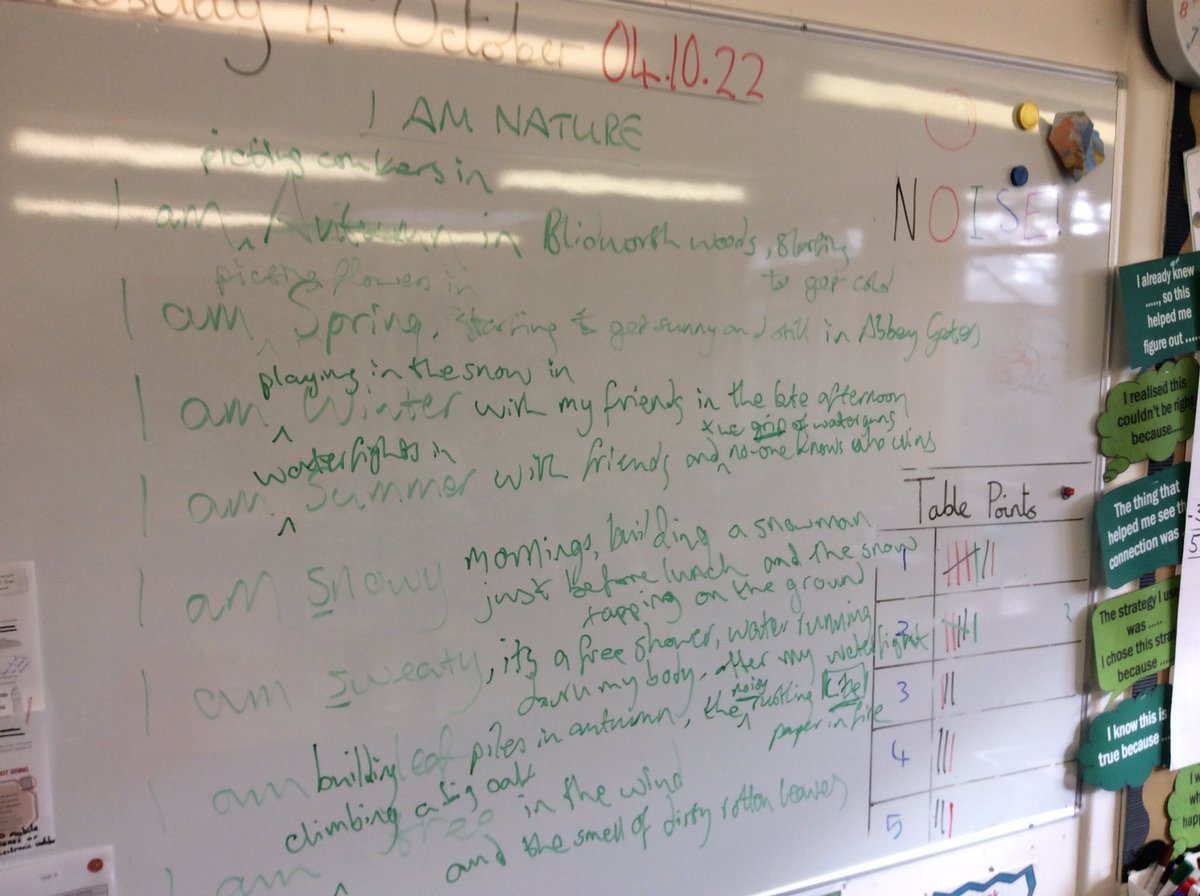 4 October 04.10.22
I AM NATURE
picking conkers in
I am Autumn in Blidworth woods, starting
to get cold
picking flowers in
I am Spring, starting to get sunny and still in Abbey Gates
playing in the snow in
I am Winter with my friends in the late afternoon
the grip of waterguns
waterfights in
I am Summer with friends and no-one knows who wins
I am snowy mornings, building a snowman
just before lunch and the snow
tapping on the ground
I am sweaty, it's a free shower, water running
down my body, after my waterfight
noisy
I am building leaf piles in autumn, the rustling like
paper in fire
climbing a big oak
I am tree in the wind
and the smell of dirty rotten leaves
NOISE!
Table Points
1
2
3
4
5
I already knew
....., so this
helped me
figure out .....
I realised this
couldn't be right
because.....
The thing that
helped me see the
connection was
The strategy I use
was .....
I chose this
because .....
I know this is
true because .....